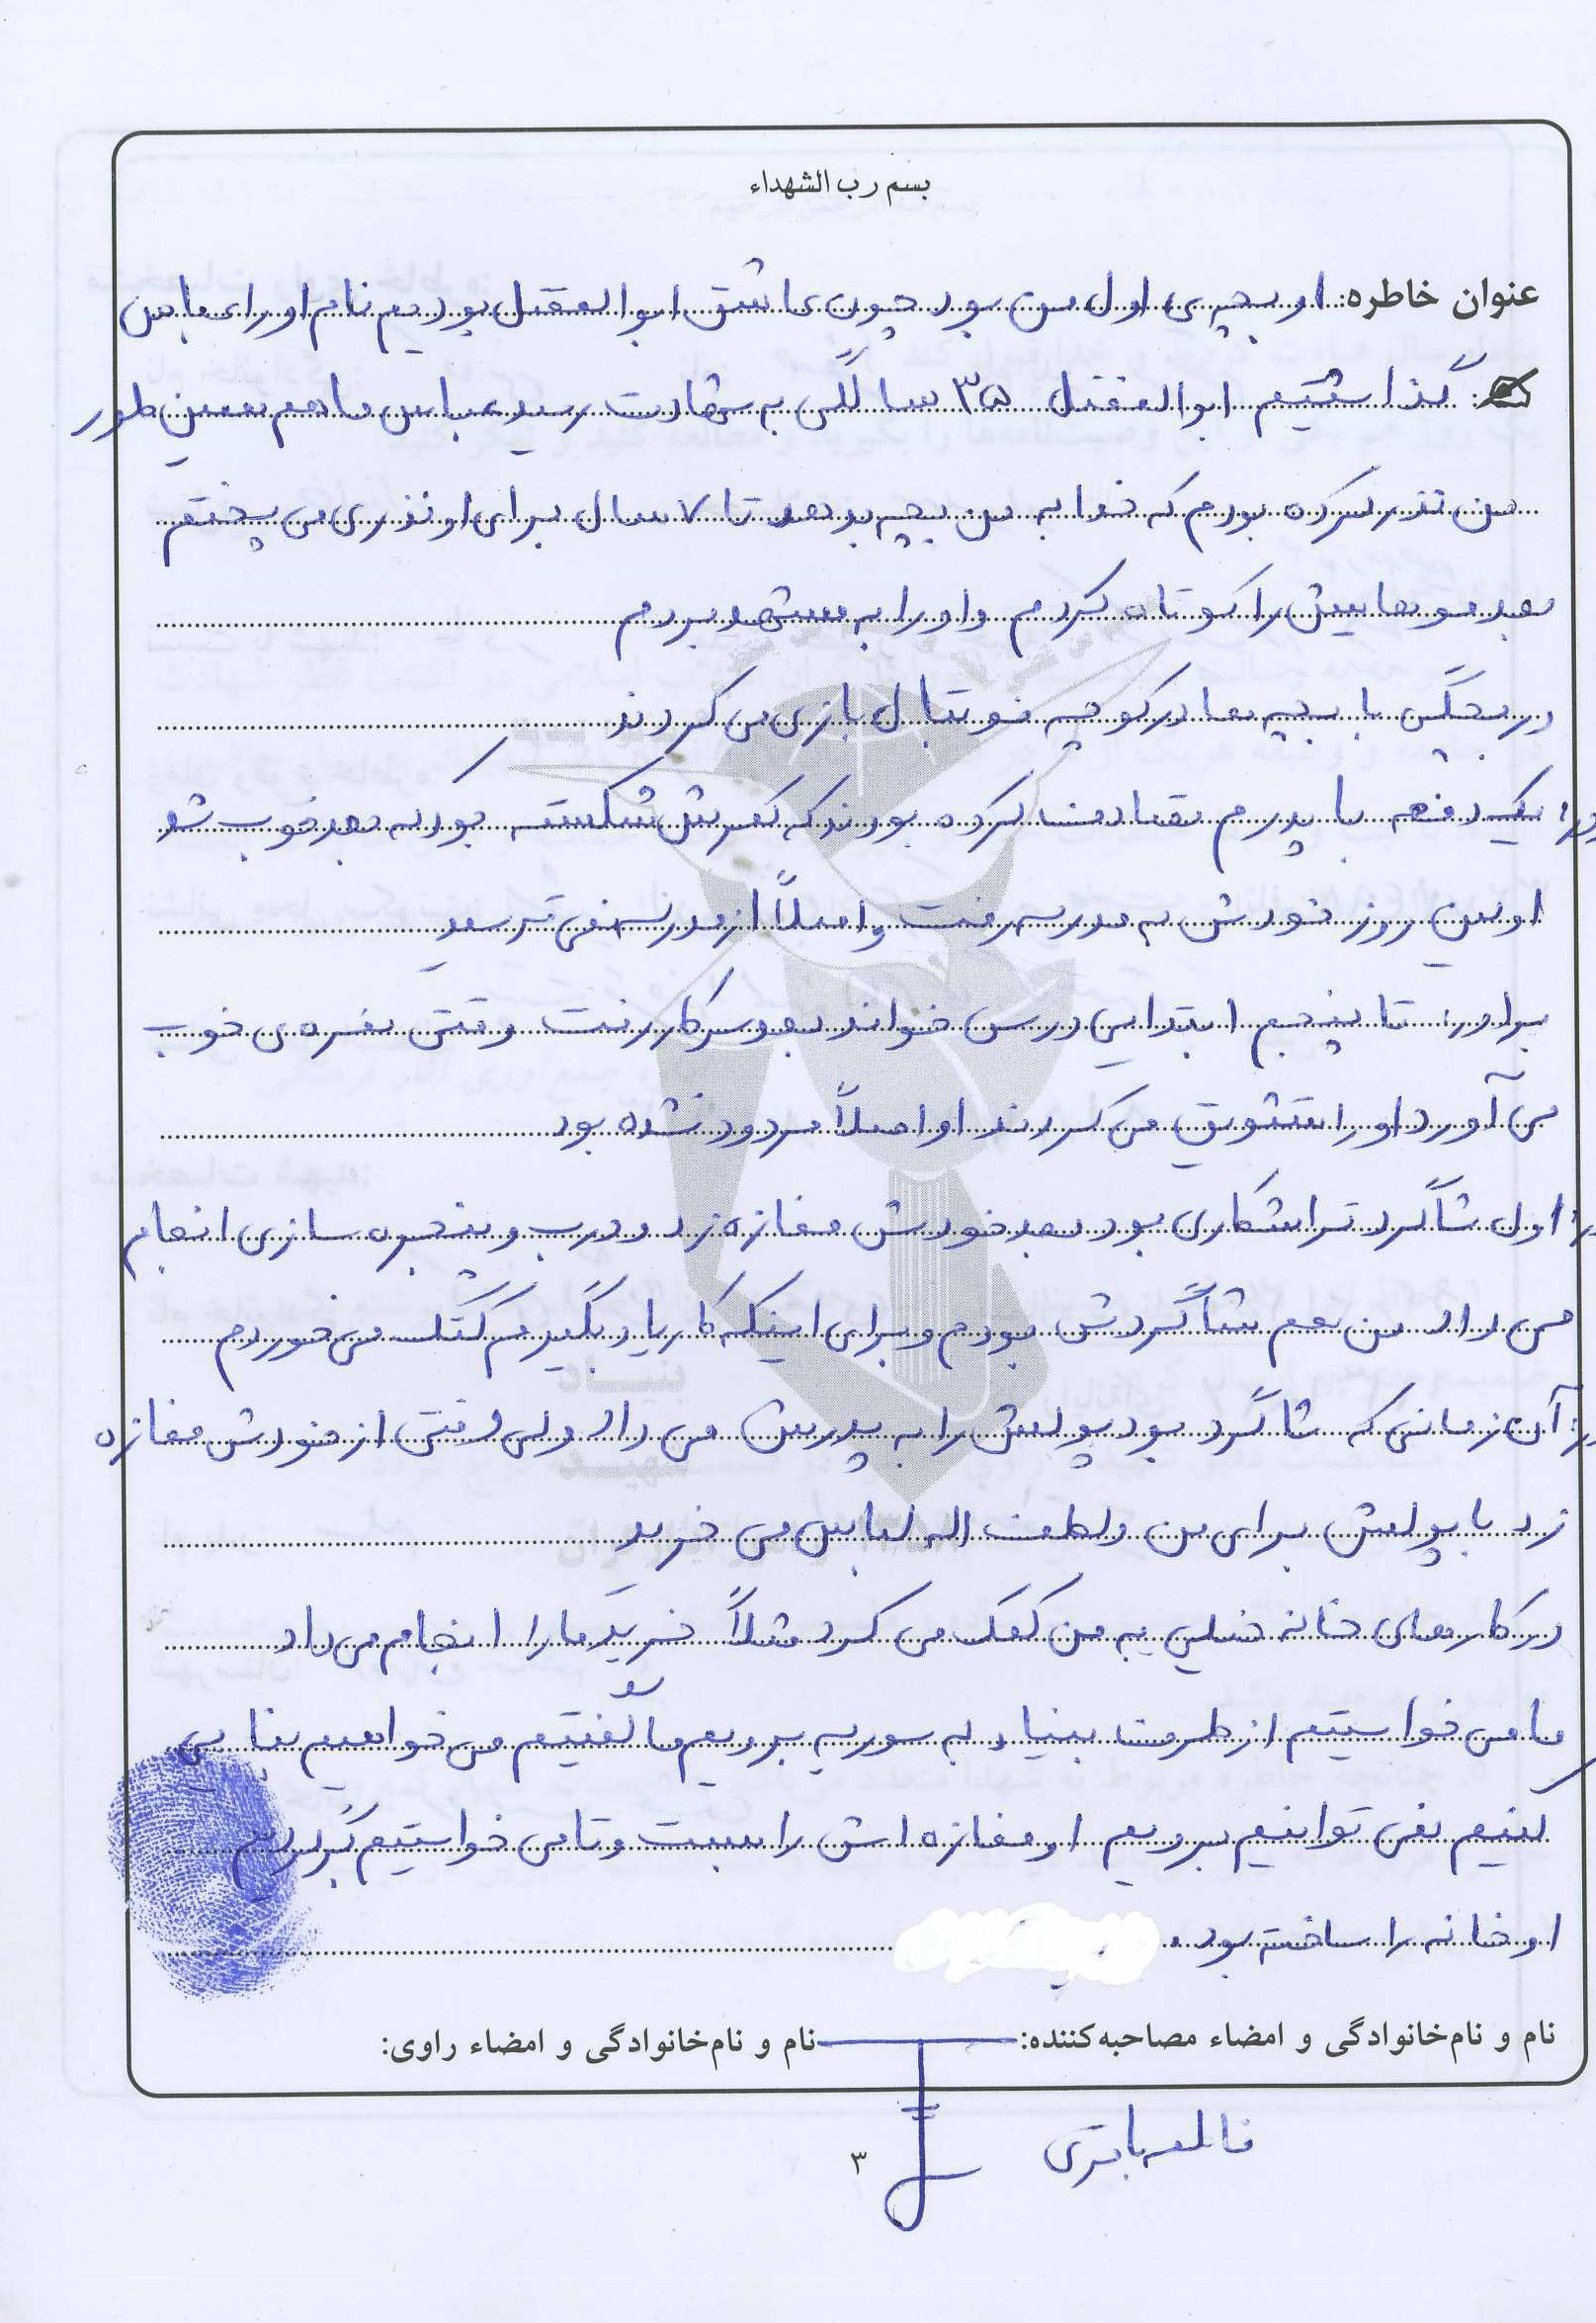 بسم رب الشهداء
عنوان خاطره: او بچه ی اول من بود چون عاشق ابوالفضل بودیم نام او را عباس
گذاشتیم ابوالفضل ۳۵ سالگی به شهادت رسید عباس ما هم همین طور
من نذر کرده بودم که خدا به من بچه بدهد تا ۷ سال برای او نذری می پختم
بعد موهایش را کوتاه کردم و او را به مشهد بردم
در بچگی با بچه ها در کوچه فوتبال بازی می کردند
یک دفعه با پدرم تصادف کرده بودند که کمرش شکسته بود که بعد خوب شد
اولین روز خودش به مدرسه رفت و اصلاً از مدرسه نمی ترسید
برادر: تا پنجم ابتدایی درس خواند بعد سرکار رفت وقتی نمره ی خوب
می آورد او را تشویق می کردند او اصلاً مردود نشده بود
اول شاگرد تراشکاری بود بعد خودش مغازه زد و درب و پنجره سازی انجام
می داد من هم شاگردش بودم و برای اینکه کار یاد بگیرم کتک می خوردم
آن زمانی که شاگرد بود پولش را به پدرش می داد ولی وقتی از خودش مغازه
زد با پولش برای من و لطف اله لباس می خرید
در کارهای خانه خیلی به من کمک می کرد مثلاً خرید ما را انجام می داد
ما می خواستیم از طرف بنیاد به سوریه برویم ما گفتیم می خواهیم بنایی
کنیم نمی توانیم برویم او مغازه اش را بست و تا می خواستیم برگردیم
او خانه را ساخته بود.
نام و نام‌خانوادگی و امضاء مصاحبه‌کننده:
نام و نام‌خانوادگی و امضاء راوی:
فاطمه باقری
۳